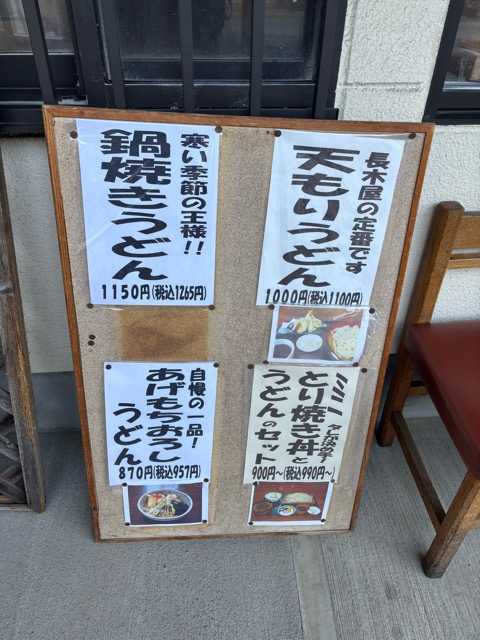 寒い季節の王様!!
鍋焼きうどん
1150円(税込1265円)
長木屋の定番です
天もりうどん
1000円(税込1100円)
自慢の一品!
あげもちおろし
うどん
870円(税込957円)
ミニ
とり焼き丼と
うどんのセット
900円〜(税込990円)〜